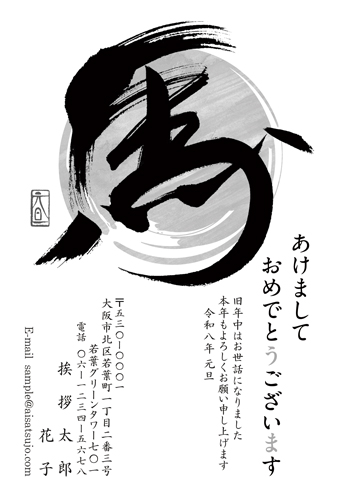 馬
元旦
あけまして
おめでとうございます
旧年中はお世話になりました
本年もよろしくお願い申し上げます
令和八年 元旦
〒五三〇-〇〇〇一
大阪市北区若葉町一丁目二番三号
若葉グリーンタワー七〇一
電話 〇六-一二三四-五六七八
挨拶 太郎
花子
E-mail sample@aisatsujo.com